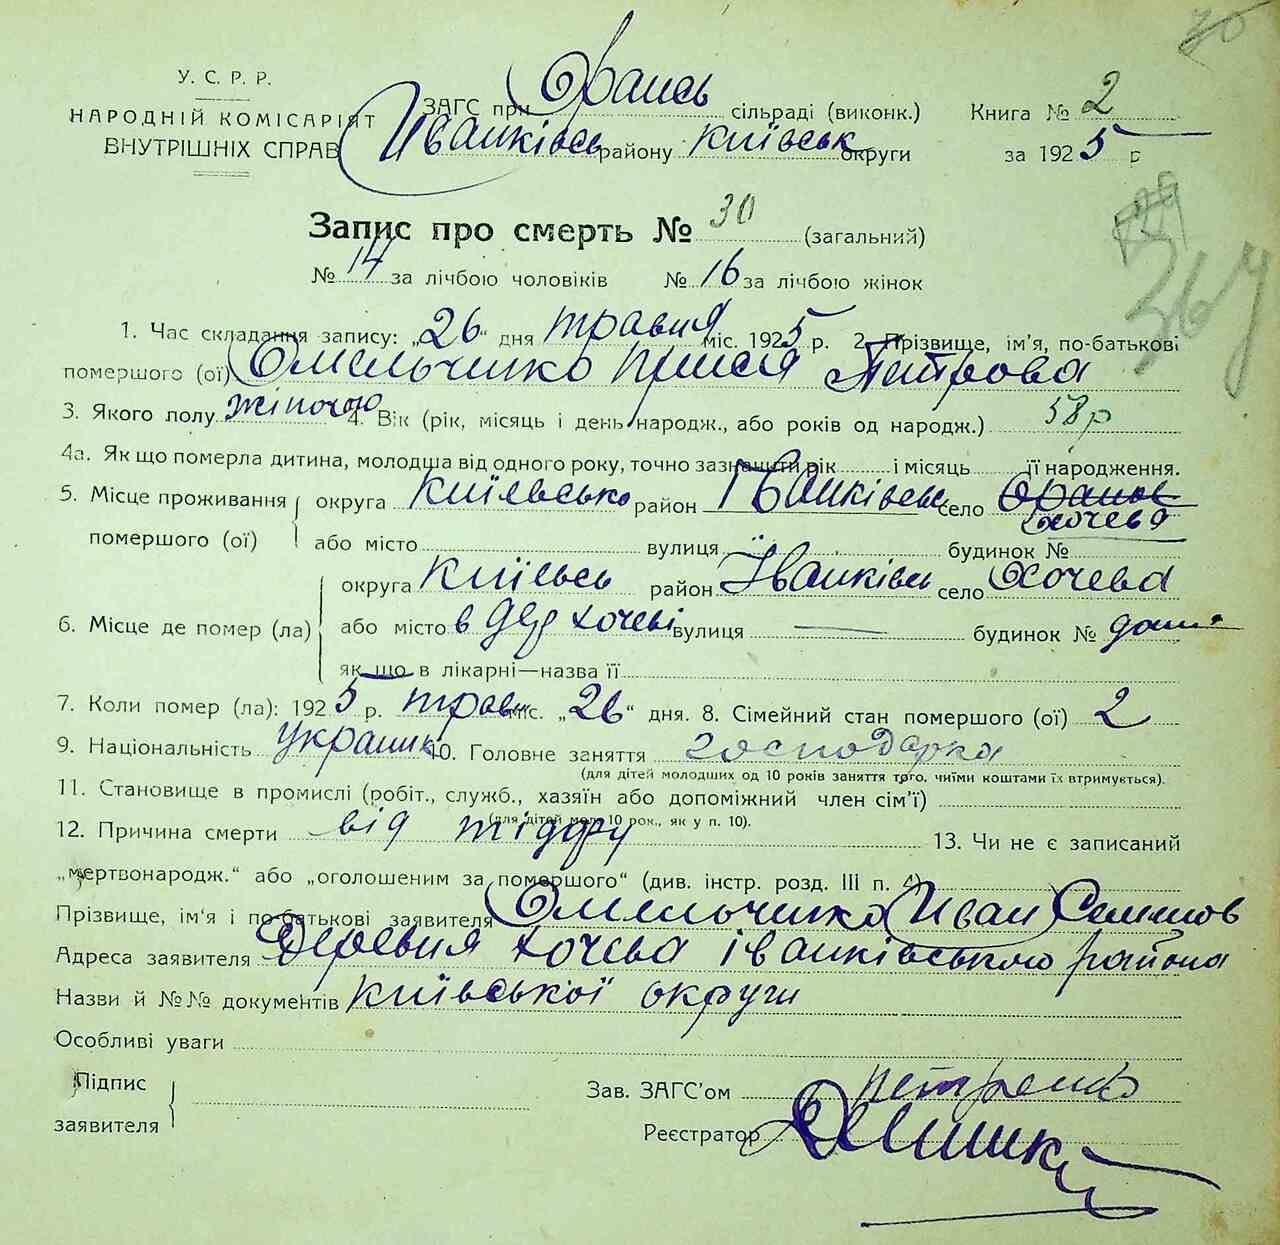 У. С. Р. Р.
НАРОДНІЙ КОМІСАРІЯТ
ВНУТРІШНІХ СПРАВ
ЗАГС при Орансь сільраді (виконк.)
Иванківсь району київськ округи
Книга № 2
за 1925 р
Запис про смерть № 30 (загальний)
№ 14 за лічбою чоловіків № 16 за лічбою жінок
1. Час складання запису: „26“ дня травня міс. 1925 р. 2. Прізвище, ім'я, по-батькові
помершого (ої) Омельчинко Прися Петрова
3. Якого полу жіночою 4. Вік (рік, місяць і день народж., або років од народж.) 58 р
4а. Як що померла дитина, молодша від одного року, точно зазначити рік і місяць її народження.
5. Місце проживання помершого (ої) округа київсько район Іванківськ село Хочева
або місто вулиця будинок №
6. Місце де помер (ла) округа київсь район Іванківсь село Хочева
або місто в дер хочеві вулиця — будинок № дома
як що в лікарні—назва її
7. Коли помер (ла): 1925 р. травн міс. „26“ дня. 8. Сімейний стан помершого (ої) 2
9. Національність украинк 10. Головне заняття господарка
(для дітей молодших од 10 років заняття того, чиїми коштами їх втримується).
11. Становище в промислі (робіт., служб., хазяїн або допоміжний член сім'ї)
(для дітей мол. 10 рок., як у п. 10).
12. Причина смерти від тіффу 13. Чи не є записаний
„мертвонародж.“ або „оголошеним за помершого“ (див. інстр. розд. III п. 4)
Прізвище, ім'я і по-батькові заявителя Омельчинко Иван Семенов
Адреса заявителя Деревня хочева іванківського района
Назви й №№ документів київської округи
Особливі уваги
Підпис заявителя
Зав. ЗАГС'ом Петренко
Реєстратор